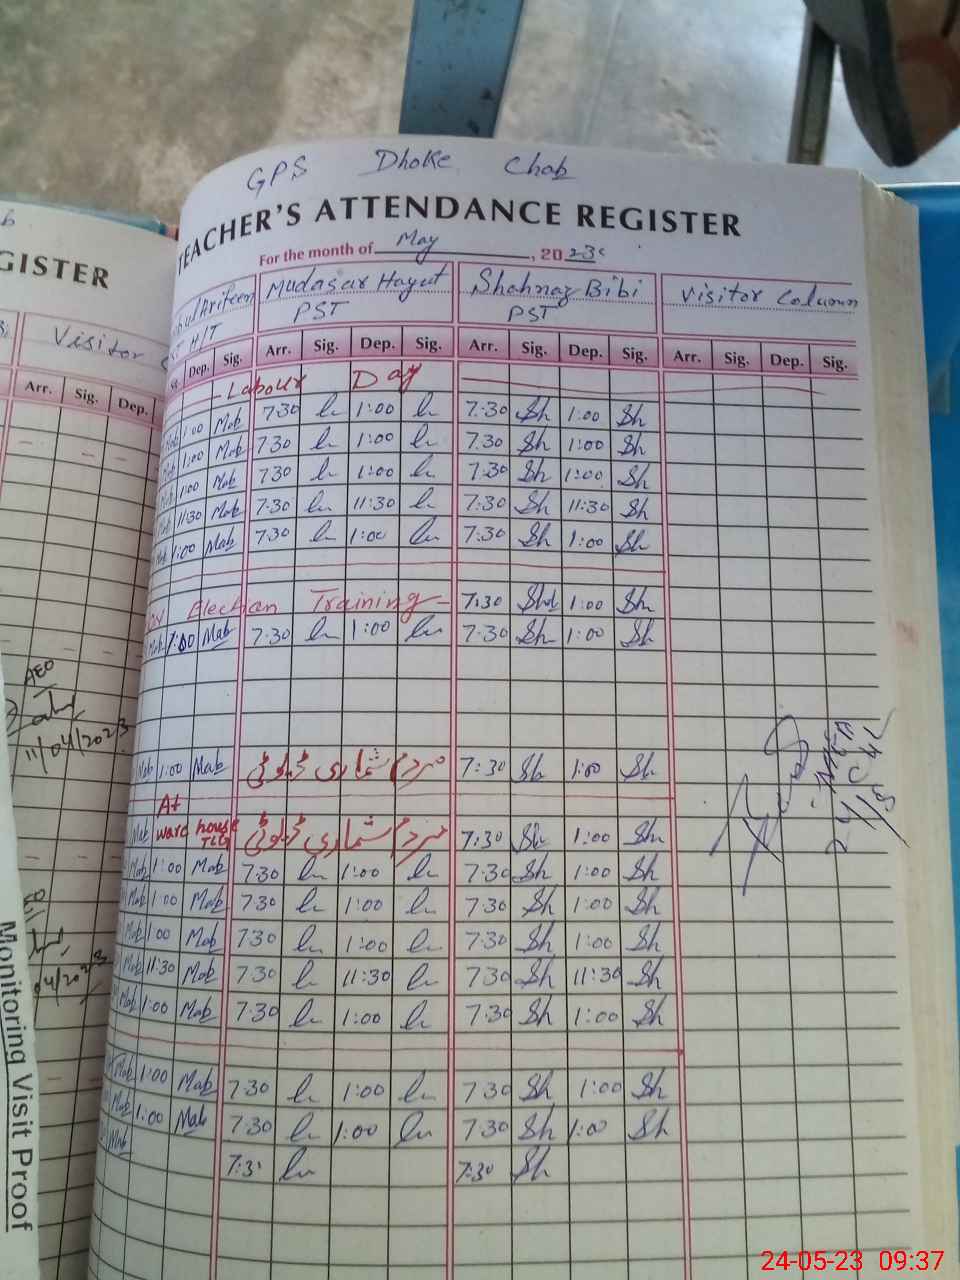 GPS Dhoke Chab
TEACHER'S ATTENDANCE REGISTER
For the month of May, 2023
Mudasar Hayat Shahnaz Bibi Visitor Column
H/T PST PST
Dep. Sig. Arr. Sig. Dep. Sig. Arr. Sig. Dep. Sig. Arr. Sig. Dep. Sig.
Labour Day
1:00 Mab 7:30 1:00 7:30 Sh 1:00 Sh
1:00 Mab 7:30 1:00 7:30 Sh 1:00 Sh
1:00 Mab 7:30 1:00 7:30 Sh 1:00 Sh
11:30 Mab 7:30 11:30 7:30 Sh 11:30 Sh
1:00 Mab 7:30 1:00 7:30 Sh 1:00 Sh
Election Training 7:30 Sh 1:00 Sh
Mab 1:00 Mab 7:30 1:00 7:30 Sh 1:00 Sh
Mab 1:00 Mab مردم شماری ڈیوٹی 7:30 Sh 1:00 Sh
At
Mab ware house مردم شماری ڈیوٹی 7:30 Sh 1:00 Sh
Mab 1:00 Mab 7:30 1:00 7:30 Sh 1:00 Sh
Mab 1:00 Mab 7:30 1:00 7:30 Sh 1:00 Sh
Mab 1:00 Mab 7:30 1:00 7:30 Sh 1:00 Sh
Mab 11:30 Mab 7:30 11:30 7:30 Sh 11:30 Sh
Mab 1:00 Mab 7:30 1:00 7:30 Sh 1:00 Sh
Mab 1:00 Mab 7:30 1:00 7:30 Sh 1:00 Sh
Mab 1:00 Mab 7:30 1:00 7:30 Sh 1:00 Sh
Mab 7:30 7:30 Sh
GISTER
Visitor
Arr. Sig. Dep.
AEO
11/04/2023
04/2023
Monitoring Visit Proof
24-05-23 09:37